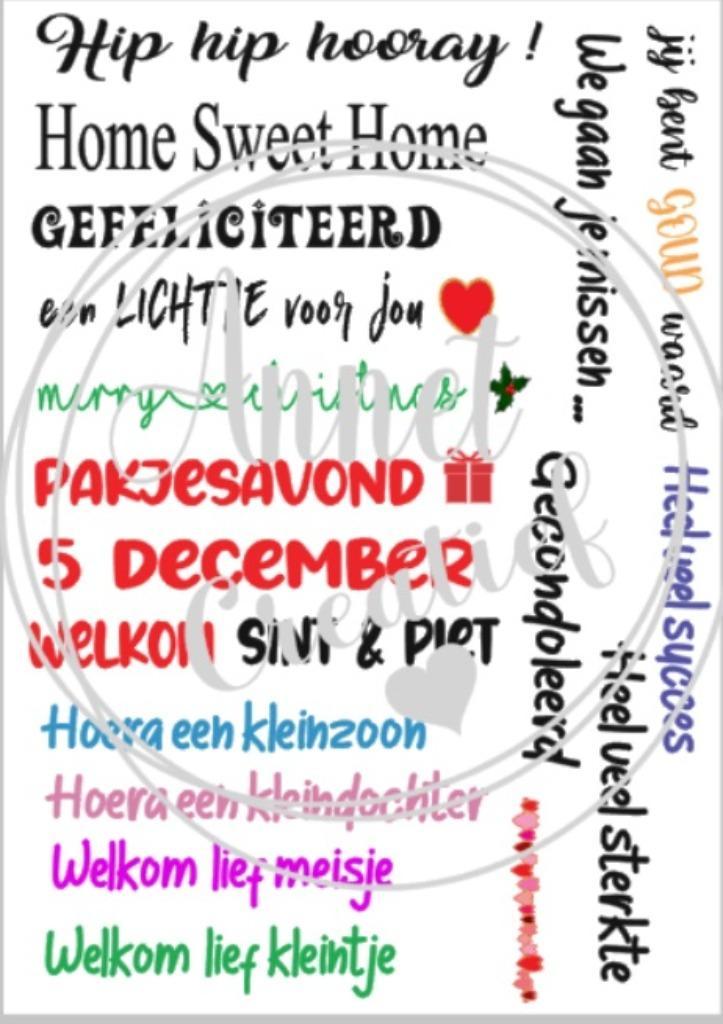 Hip hip hooray !
Home Sweet Home
GEFELICITEERD
een LICHTJE voor jou
merry christmas
PAKJESAVOND
5 DECEMBER
WELKOM SINT & PIET
Hoera een kleinzoon
Hoera een kleindochter
Welkom lief meisje
Welkom lief kleintje
We gaan je missen...
jij bent GOUD waard
Gecondoleerd
Heel veel succes
Heel veel sterkte
Annet
Creatief